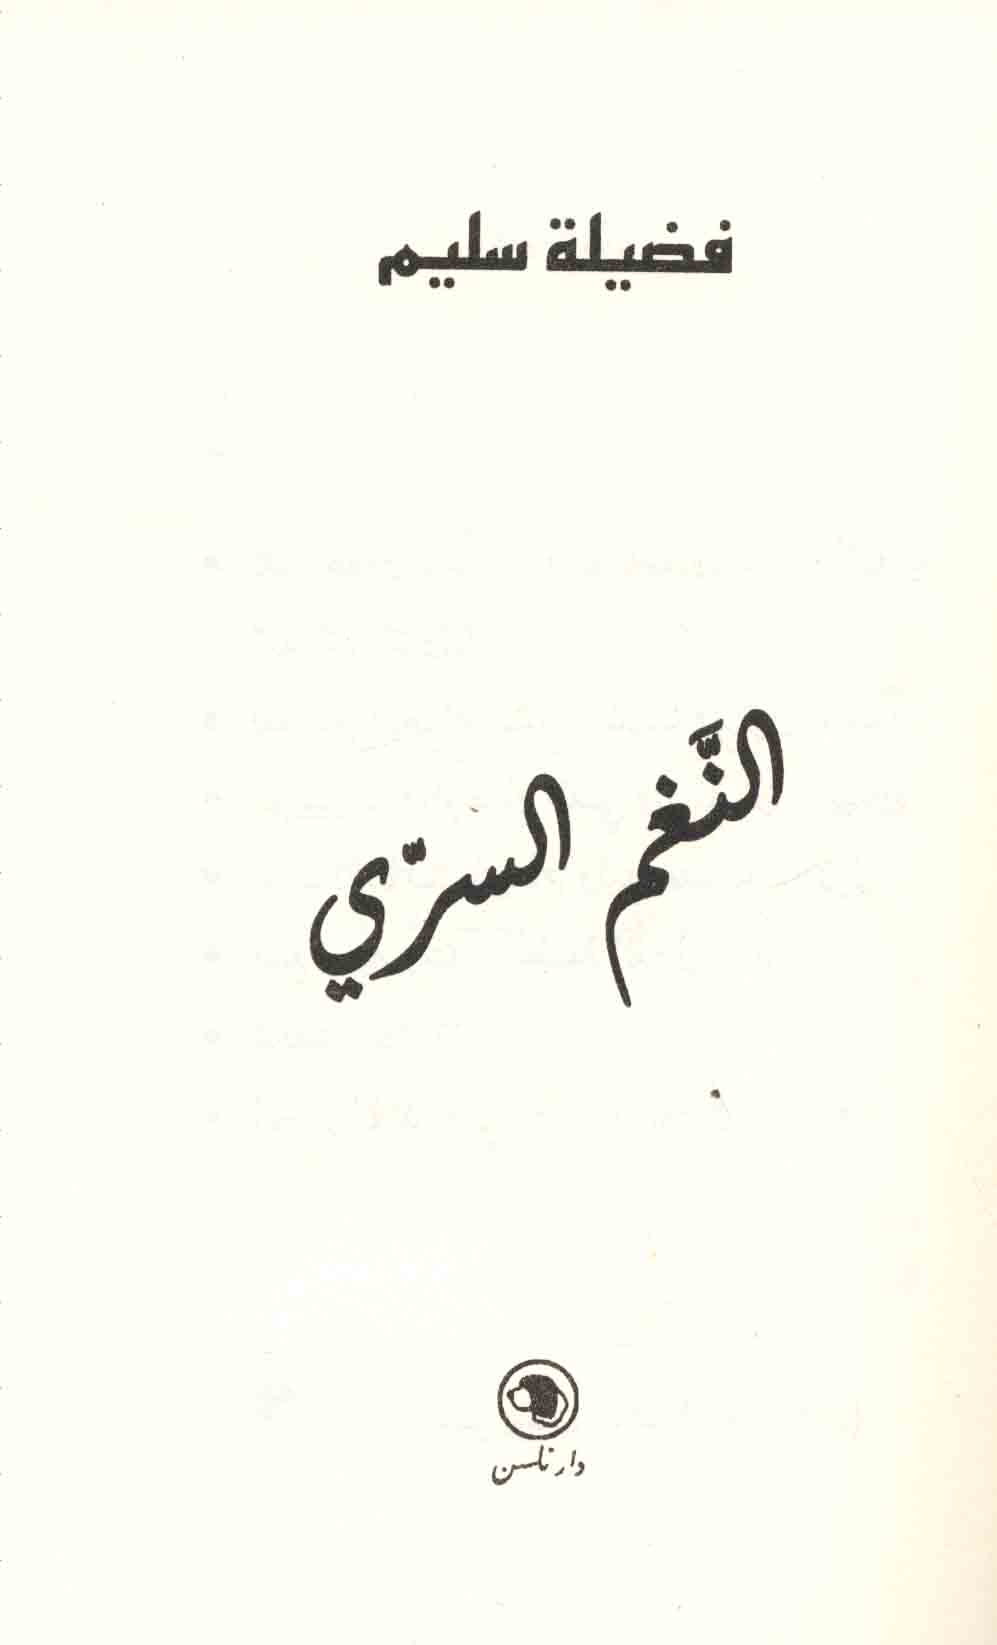 فضيلة سليم
النَّغم السرّي
دار نلسن